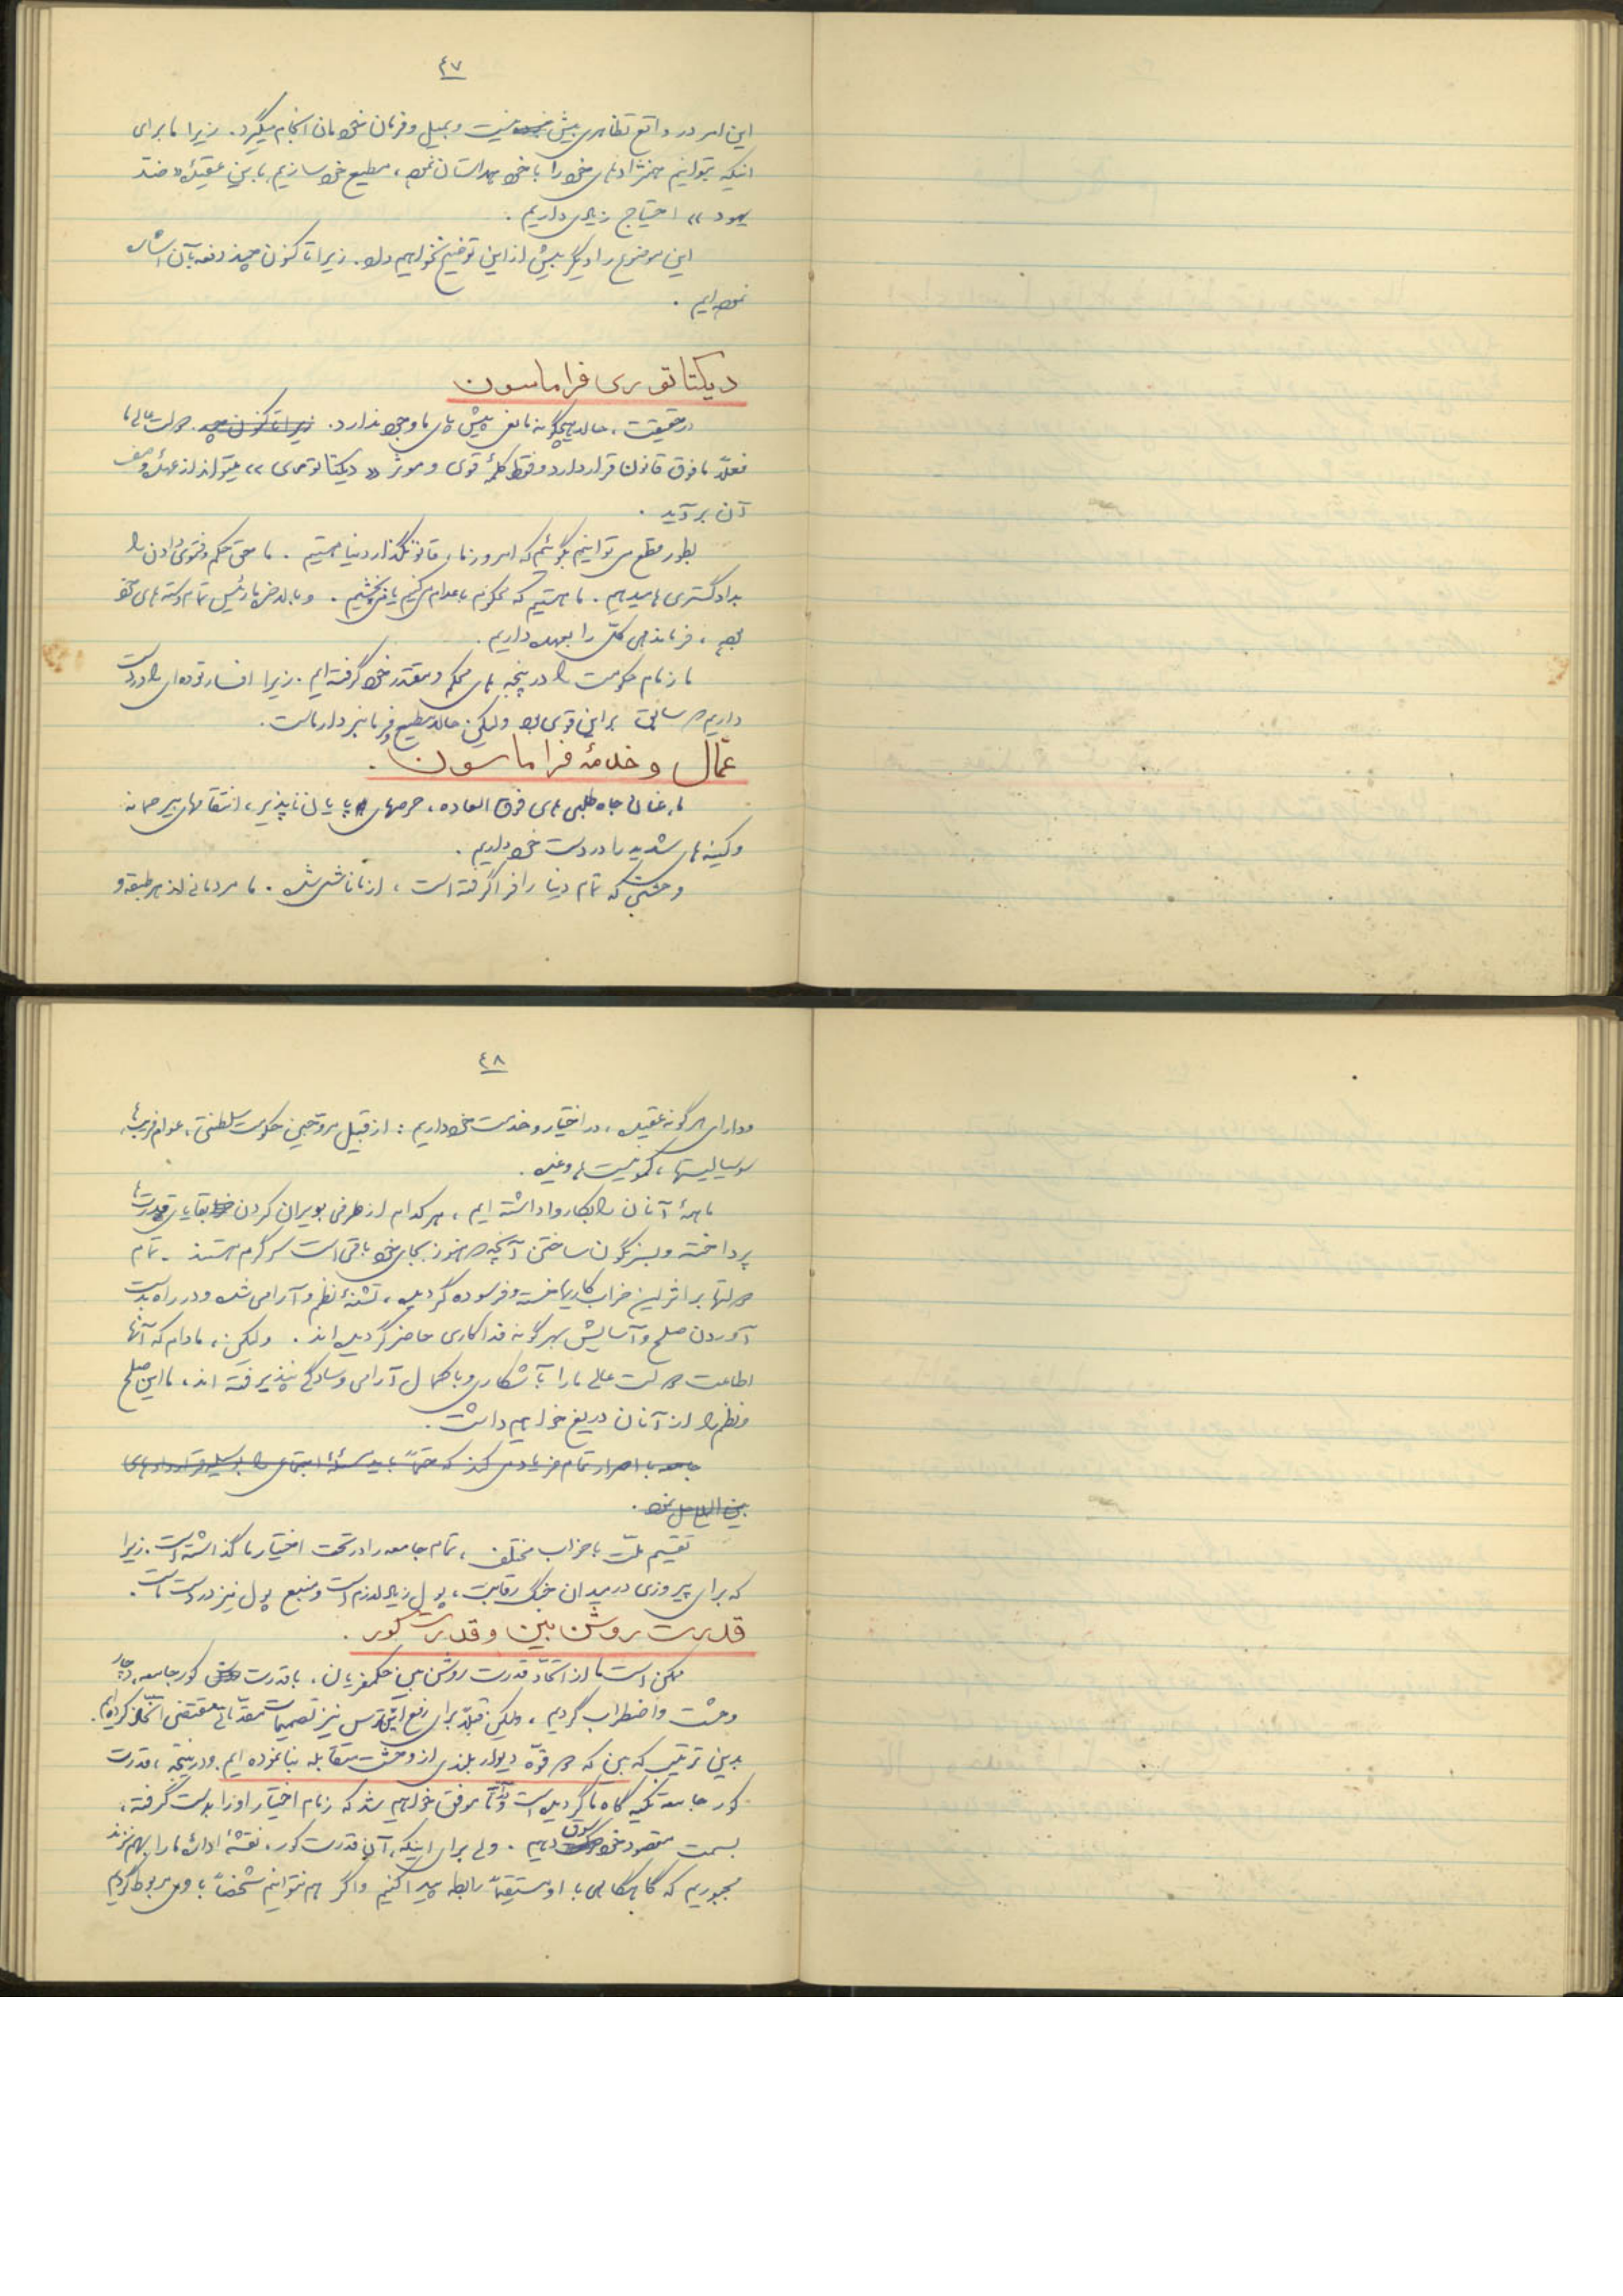 ٤٧
این امر در واقع تظاهری بیش نیست و بمیل و فرمان خودمان انجام میگیرد. زیرا ما برای
اینکه بتوانیم همنژادهای خود را با خود همداستان نموده، مطیع خود سازیم باین عقیدهٔ «ضد
یهود» احتیاج زیادی داریم.
این موضوع را دیگر بیش از این توضیح نخواهیم داد. زیرا تاکنون چند دفعه بآن اشاره
نموده‌ایم.
دیکتاتوری فراماسون
در حقیقت، حالا هیچگونه مانعی پیش پای ما وجود ندارد. زیرا تاکنون چند دولت عالی ما
فعلاً مافوق قانون قرار دارد و فقط کلمهٔ قوی و موثر «دیکتاتوری» میتواند از عهدهٔ وصف
آن برآید.
بطور قطع می‌توانیم بگوئیم که امروز ما، قانونگذار دنیا هستیم. ما حق حکم و فتوی دادن را
بدادگستری‌ها میدهیم. ما هستیم که محکوم باعدام می‌کنیم یا می‌بخشیم. و بالاخره ما رئیس تمام دسته‌های خود
بوده، فرماندهی کل را بعهده داریم.
ما زمام حکومت را در پنجه‌های محکم و مقتدر خود گرفته‌ایم. زیرا افسار توده‌ای را در دست
داریم که سابق بر این قوی بود ولیکن حالا مطیع و فرمانبردار ماست.
عمّال و خدمهٔ فراماسون.
ما، عنان جاه طلبی‌های فوق العاده، حرصهای پایان ناپذیر، انتقامهای بیرحمانه
و کینه‌های شدید را در دست خود داریم.
وحشتی که تمام دنیا را فرا گرفته است، از ما ناشی شده. ما مردمانی از هر طبقه و
٤٨
و دارای هر گونه عقیده، در اختیار و خدمت خود داریم: از قبیل مروّجین حکومت سلطنتی، عوام‌فریب‌ها،
سوسیالیستها، کمونیست‌ها و غیره.
ما همهٔ آنان را بکار واداشته‌ایم، هر کدام از طرفی بویران کردن بقایای قدرت‌ها
پرداخته و بسرنگون ساختن آنچه که هنوز بجای خود باقی است سرگرم هستند. تمام
دولتها بر اثر این خراب کاریها خسته و فرسوده گردیده، تشنهٔ نظم و آرامی شده و در راه بدست
آوردن صلح و آسایش بهر گونه فداکاری حاضر گردیده‌اند. ولیکن، مادام که آنها
اطاعت دولت عالی ما را بآشکاری و با کمال آرامی و سادگی نپذیرفته‌اند، ما این صلح
و نظم را از آنان دریغ خواهیم داشت.
جامعه با اصرار تمام فریاد می‌کند که حتماً باید مسئلهٔ اجتماعی را بوسیلهٔ قراردادهای
بین المللی حل نمود.
تقسیم ملّت باحزاب مختلف، تمام جامعه را در تحت اختیار ما گذاشته است. زیرا
که برای پیروزی در میدان جنگ رقابت، پول زیاد لازم است و منبع پول نیز در دست ماست.
قدرت روشن بین و قدرت کور.
ممکن است ما از اتحاد قدرت روشن بین حکمفرمایان، با قدرت کور جامعه، دچار
وحشت و اضطراب گردیم، ولیکن قبلاً برای رفع این ترس نیز تصمیمات مقدماتی مقتضی اتخاذ کرده‌ایم.
بدین ترتیب که بین که دو قوّه دیوار بلندی از وحشت متقابله بنا نموده ایم. و در نتیجه، قدرت
کور جامعه تکیه گاه ما گردیده است و موفق خواهیم شد که زمام اختیار او را بدست گرفته،
بسمت مقصود خود سوق دهیم. ولی برای اینکه، آن قدرت کور، نقشهٔ ادارهٔ ما را بهم نزند
مجبوریم که گاهگاهی با او مستقیماً رابطه پیدا کنیم و اگر هم نتوانیم شخصاً با وی مربوط گردیم